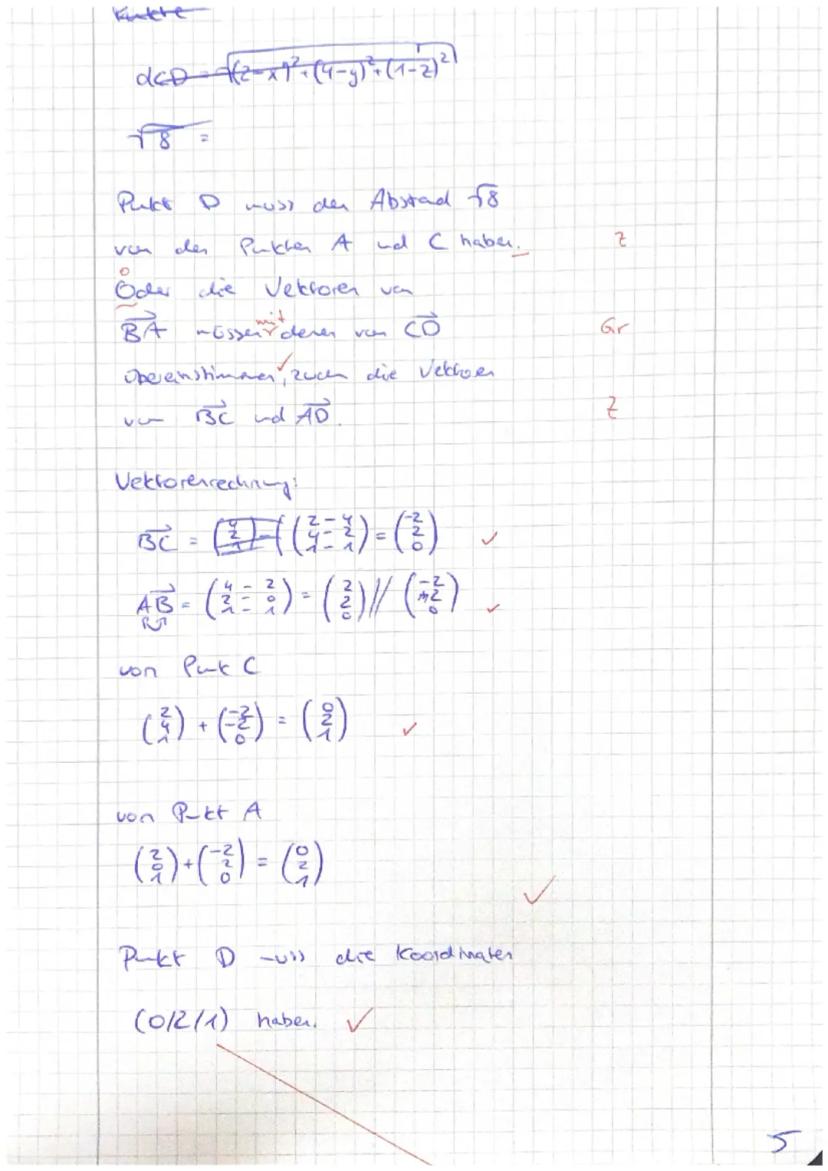 Punkte
dCD = √(2-x)²+(4-y)²+(1-z)²
√8 =
Punkt D muss den Abstand √8
von den Punkten A und C haben. Z
o
Oder die Vektoren von
mit
BA müssen denen von CD Gr
übereinstimmen, auch die Vektoren
von BC und AD. Z
Vektorenrechnung:
BC = (4 2 1) - (2-4 4-2 1-1) = (-2 2 0) ✓
AB = (4-2 2-0 1-1) = (2 2 0) // (-2 -2 0) ✓
von Punkt C
(2 4 1) + (-2 -2 0) = (0 2 1) ✓
von Punkt A
(2 0 1) + (-2 2 0) = (0 2 1)
✓
Punkt D muss die Koordinaten
(0/2/1) haben. ✓
5